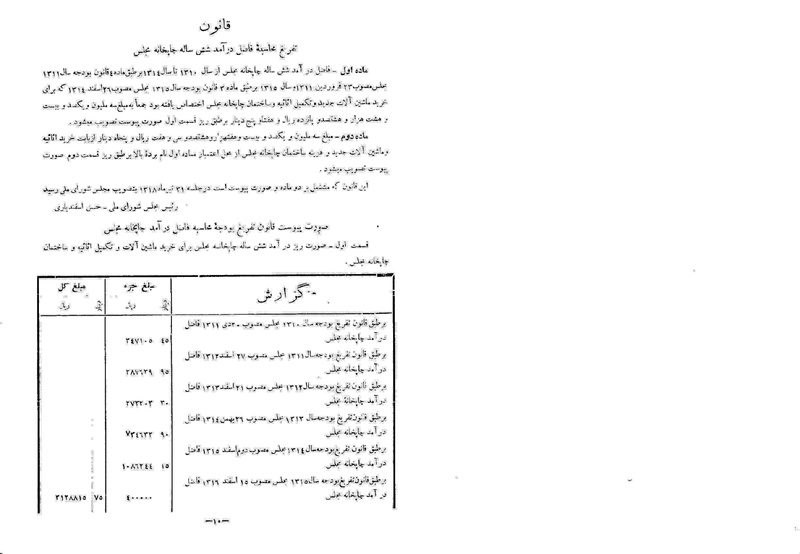 قانون
تفریغ محاسبهٔ فاضل درآمد شش ساله چاپخانه مجلس
ماده اول - فاضل در آمد شش ساله چاپخانه مجلس از سال ۱۳۱۰ تا سال ۱۳۱۴ برطبق ماده ۴ قانون بودجه سال ۱۳۱۱
مجلس مصوب ۲۳ فروردین ۱۳۱۱ و سال ۱۳۱۵ برطبق ماده ۳ قانون بودجه سال ۱۳۱۵ مجلس مصوب ۲۶ اسفند ۱۳۱۴ که برای
خرید ماشین آلات جدید و تکمیل اثاثیه و ساختمان چاپخانه مجلس اختصاص یافته بود جمعاً به مبلغ سه ملیون و یکصد و بیست
و هشت هزار و هشتصد و پانزده ریال و هفتاد و پنج دینار برطبق ریز قسمت اول صورت پیوست تصویب میشود.
ماده دوم - مبلغ سه ملیون و یکصد و بیست و هفت هزار و هشتصد و سی و هفت ریال و پنجاه دینار از بابت خرید اثاثیه
و ماشین آلات جدید و هزینه ساختمان چاپخانه مجلس از محل اعتبار ماده اول نام بردهٔ بالا برطبق ریز قسمت دوم صورت
پیوست تصویب میشود.
این قانون که مشتمل بر دو ماده و صورت پیوست است در جلسه ۳۱ تیر ماه ۱۳۱۸ بتصویب مجلس شورای ملی رسید
رئیس مجلس شورای ملی - حسن اسفندیاری
صورت پیوست قانون تفریغ بودجهٔ محاسبه فاضل در آمد چاپخانه مجلس
قسمت اول - صورت ریز در آمد شش ساله چاپخانه مجلس برای خرید ماشین آلات و تکمیل اثاثیه و ساختمان
چاپخانه مجلس.
گزارش مبلغ جزء مبلغ کل
دینار ریال دینار ریال
برطبق قانون تفریغ بودجه سال ۱۳۱۰ مجلس مصوب ۲۰ دی ۱۳۱۱ فاضل
درآمد چاپخانه مجلس ۴۵ ۳۴۷۱۰۵
برطبق قانون تفریغ بودجه سال ۱۳۱۱ مجلس مصوب ۲۷ اسفند ۱۳۱۲ فاضل
درآمد چاپخانه مجلس ۹۵ ۲۸۷۶۲۹
برطبق قانون تفریغ بودجه سال ۱۳۱۲ مجلس مصوب ۲۱ اسفند ۱۳۱۳ فاضل
درآمد چاپخانهٔ مجلس ۳۰ ۲۷۳۲۰۳
برطبق قانون تفریغ بودجه سال ۱۳۱۳ مجلس مصوب ۲۶ بهمن ۱۳۱۴ فاضل
درآمد چاپخانه مجلس ۹۰ ۷۳۴۶۳۲
برطبق قانون تفریغ بودجه سال ۱۳۱۴ مجلس مصوب دوم اسفند ۱۳۱۵ فاضل
درآمد چاپخانه مجلس ۱۵ ۱۰۸۶۲۴۴
برطبق قانون تفریغ بودجه سال ۱۳۱۵ مجلس مصوب ۱۵ اسفند ۱۳۱۶ فاضل
در آمد چاپخانه مجلس ۴۰۰۰۰۰ ۷۵ ۳۱۲۸۸۱۵
-۱۰-